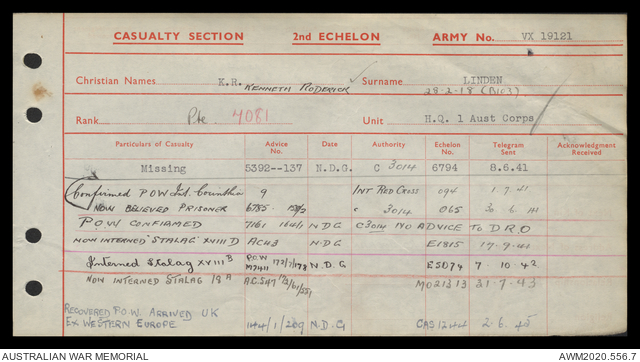 CASUALTY SECTION 2nd ECHELON ARMY No. VX 19121
Christian Names K.R. KENNETH RODERICK Surname LINDEN
28-2-18 (B103)
Rank Pte 4081 Unit H.Q. 1 Aust Corps
Particulars of Casualty Advice No. Date Authority Echelon No. Telegram Sent Acknowledgment Received
Missing 5392--137 N.D.G. C 3014 6794 8.6.41
Confirmed P.O.W Int. Corinthia 9 INT RED CROSS 094 1.7.41
NOW BELIEVED PRISONER 6785 C 3014 065 30.6.41
P.O.W CONFIRMED 7161 164/1 NDG C3014 NO ADVICE TO D.R.O
NOW INTERNED STALAG XVIII D AC43 N.D.G E1815 17.9.42
Interned Stalag XVIII B P.O.W M7411 172/7/178 N.D.G E5074 7.10.42
NOW INTERNED STALAG 18A A.C.547 M021313 21.7.43
RECOVERED P.O.W. ARRIVED UK
EX WESTERN EUROPE 144/1/209 N.D.G CAS 1244 2.6.45
AUSTRALIAN WAR MEMORIAL AWM2020.556.7